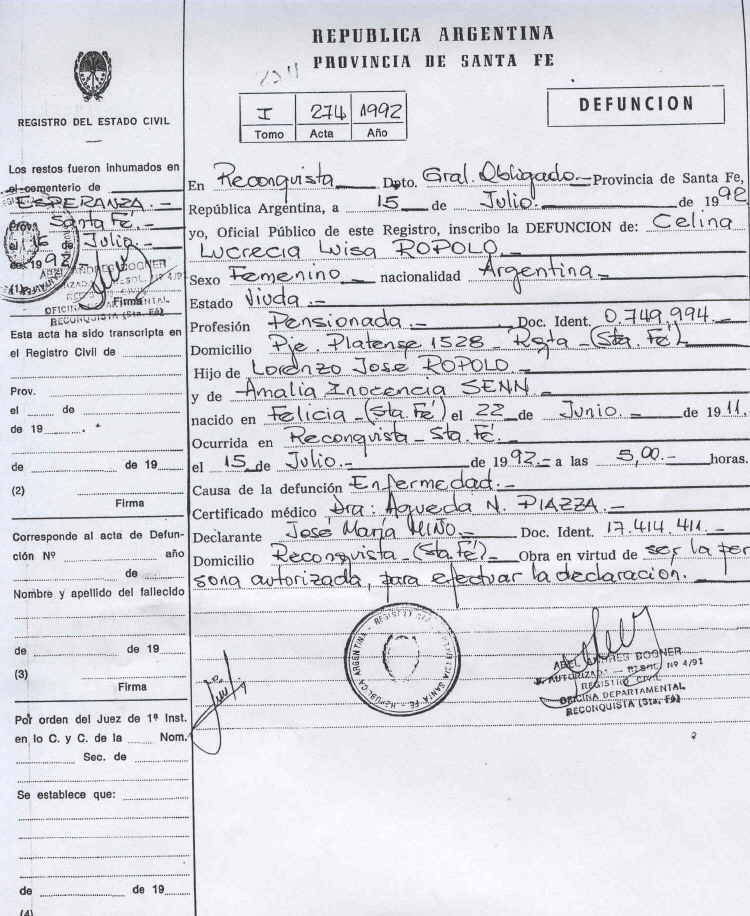 REPUBLICA ARGENTINA
PROVINCIA DE SANTA FE
I 274 1992
Tomo Acta Año
DEFUNCION
REGISTRO DEL ESTADO CIVIL
Los restos fueron inhumados en
el cementerio de
ESPERANZA.-
Prov. Santa Fé.-
el 16 de Julio
de 19 92
(1) Firma
Esta acta ha sido transcripta en
el Registro Civil de
Prov.
el de
de 19 .
de de 19
(2)
Firma
Corresponde al acta de Defun-
ción Nº año
de
Nombre y apellido del fallecido
de de 19
(3)
Firma
Por orden del Juez de 1ª Inst.
en lo C. y C. de la Nom.
Sec. de
Se establece que:
de de 19
(4)
En Reconquista Dpto. Gral. Obligado.- Provincia de Santa Fe,
República Argentina, a 15 de Julio.- de 1992
yo, Oficial Público de este Registro, inscribo la DEFUNCION de: Celina
Lucrecia Luisa ROPOLO.-
Sexo Femenino nacionalidad Argentina.-
Estado Viuda.-
Profesión Pensionada.- Doc. Ident. 0.749.994.-
Domicilio Pje. Platense 1528 - Rqta - (Sta. Fé)
Hijo de Lorenzo José ROPOLO.-
y de Amalia Inocencia SENN.-
nacido en Felicia - (Sta. Fé) el 22 de Junio.- de 1911.-
Ocurrida en Reconquista - Sta. Fé.-
el 15 de Julio.- de 1992.- a las 5,00.- horas.
Causa de la defunción Enfermedad.-
Certificado médico Dra: Agueda N. PIAZZA.-
Declarante José María MIÑO.- Doc. Ident. 17.414.411.-
Domicilio Reconquista - (Sta. Fé) - Obra en virtud de ser la per
sona autorizada, para efectuar la declaración.-
REPUBLICA ARGENTINA
ABEL ANDRES BOGNER
J. AUTORIZADO - RESOL. Nº 4/91
REGISTRO CIVIL
OFICINA DEPARTAMENTAL
RECONQUISTA (Sta. Fé)